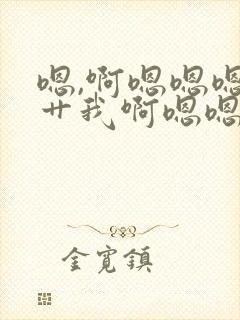 嗯,啊嗯嗯嗯
艹我啊嗯嗯
金宽镇